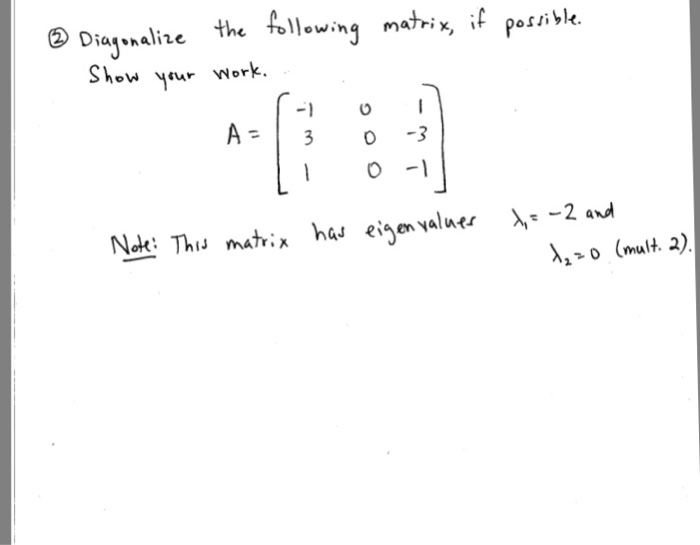 ② Diagonalize the following matrix, if possible.
Show your work.
A = [ -1 0 1
3 0 -3
1 0 -1 ]
Note: This matrix has eigenvalues λ₁ = -2 and
λ₂ = 0 (mult. 2).